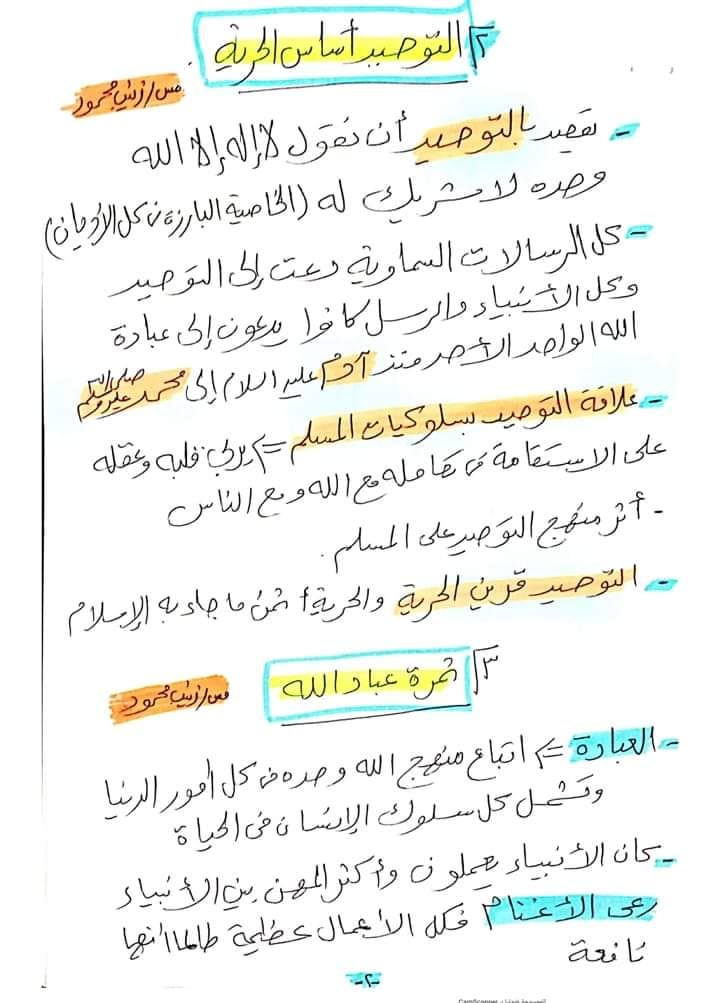 ٢ التوحيد أساس الحرية
مس/زينب محمود
- يقصد بالتوحيد أن نقول لا إله إلا الله
وحده لا شريك له (الخاصية البارزة فى كل الأديان)
- كل الرسالات السماوية دعت إلى التوحيد
وكل الأنبياء والرسل كانوا يدعون إلى عبادة
الله الواحد الأحد منذ آدم عليه السلام إلى محمد صلى الله عليه وسلم
- علاقة التوحيد بسلوكيات المسلم <= يربي قلبه وعقله
على الاستقامة فى تعامله مع الله ومع الناس
- أثر منهج التوحيد على المسلم.
- التوحيد قرين الحرية والحرية أثمن ما جاء به الإسلام
٣ ثمرة عباد الله
مس/زينب محمود
- العبادة <= اتباع منهج الله وحده فى كل أمور الدنيا
وتشمل كل سلوك الإنسان فى الحياة
- كان الأنبياء يعملون وأكثر المهن بين الأنبياء
رعى الأغنام فكل الأعمال عظيمة طالما أنها
نافعة
-٢-